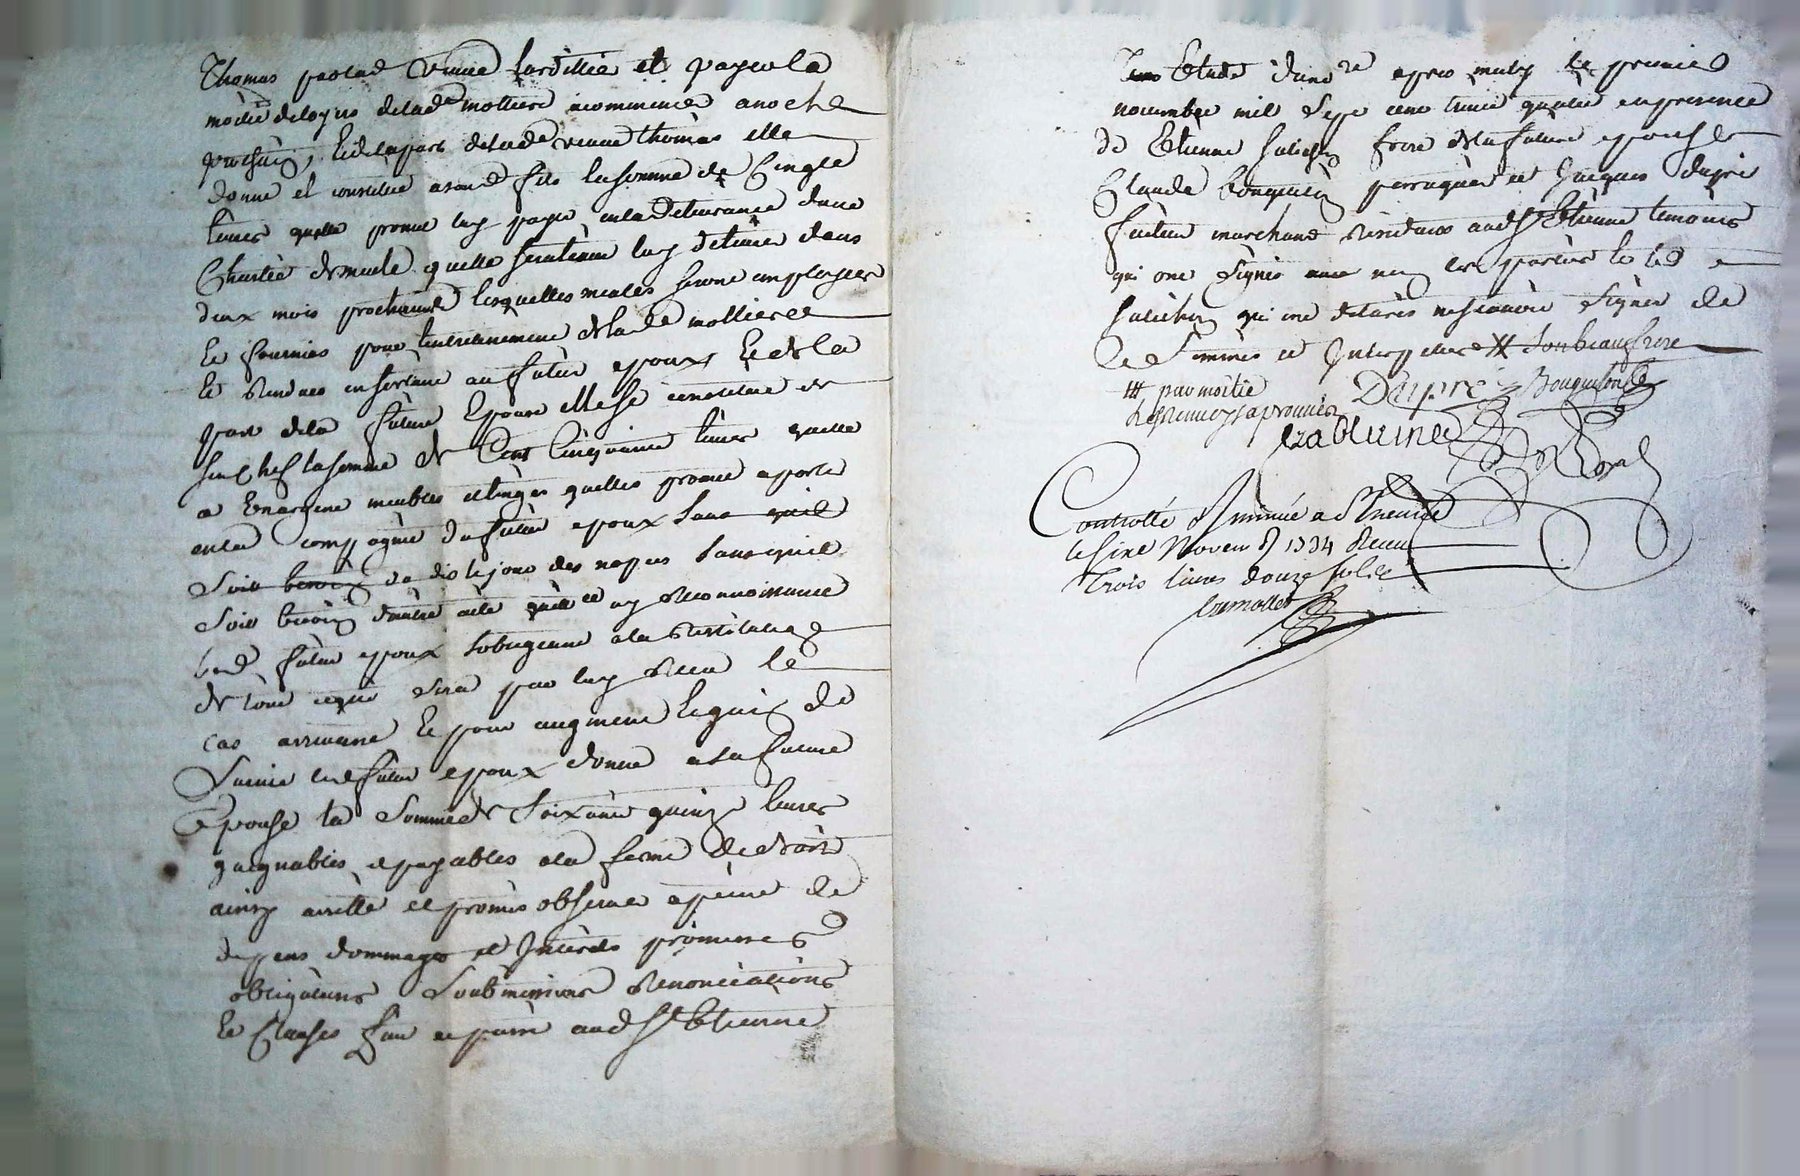 Thomas par lad veuve fardillie et payer la
moitié de loyers de lad molliere a commencer a noel
prochain, Et de la part de lad veuve thomas elle
donne et constitue a son d fils la somme de Cinq
livres quelle promet luy payer en la delivrance dune
de meule quelle sera tenue luy delivrer dans
deux mois prochains lesquelles meules seront employees
Et fournies pour lentretenement de lad molliere
Et Rendues en au futur epoux, Et de la
part dela future Epouse Elle se constitue de
son chef la somme de Cent Cinquante livres quelle
a En argent meubles et linges quelle promet apporter
en la compagnie du futur epoux sans quil
soit besoin da dis le jour des nopces sans quil
soit besoin dautre acte quittce ny Reconnoissance
led futur epoux sobligeant a la Restitution
de tout ce qui sera par luy Receu le
cas arrivant Et pour augment Et gain de
Survie led futur epoux donne a la future
Epouse la Somme de Soixante quinze livres
gaignables et payables a la forme de droit
ainsy arrêtté et promis observer a peine de
depens dommages et Interets promesses
obligations Soubmissions Renonciations
Et Clauses fait et passé aud St Etienne
Etude dud nre apres midy le premier
novembre mil Sept cent trente quatre en presence
de Etienne frere de la future epouse
Claude perruquier et Jacques dupré
marchand Residants aud St Etienne temoins
qui ont Signés avec les parties led
qui ont declarés ne scavoir Signer de
ce Sommés et Interpellés # son beau frere
# par moitié
Dupré
Controllé & Insinué a St Etienne
le Sixe Novem 1734 Receu
Trois livres douze sols